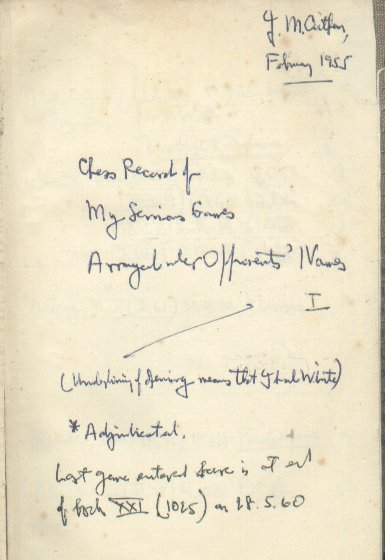 J. M. Aitken,
February 1955
Chess Record of
My Serious Games
Arranged under Opponents' Names
I
(Underlining of Opening means that I had White)
* Adjudicated.
Last game entered here is at end
of book XXI (1025) on 28.5.60